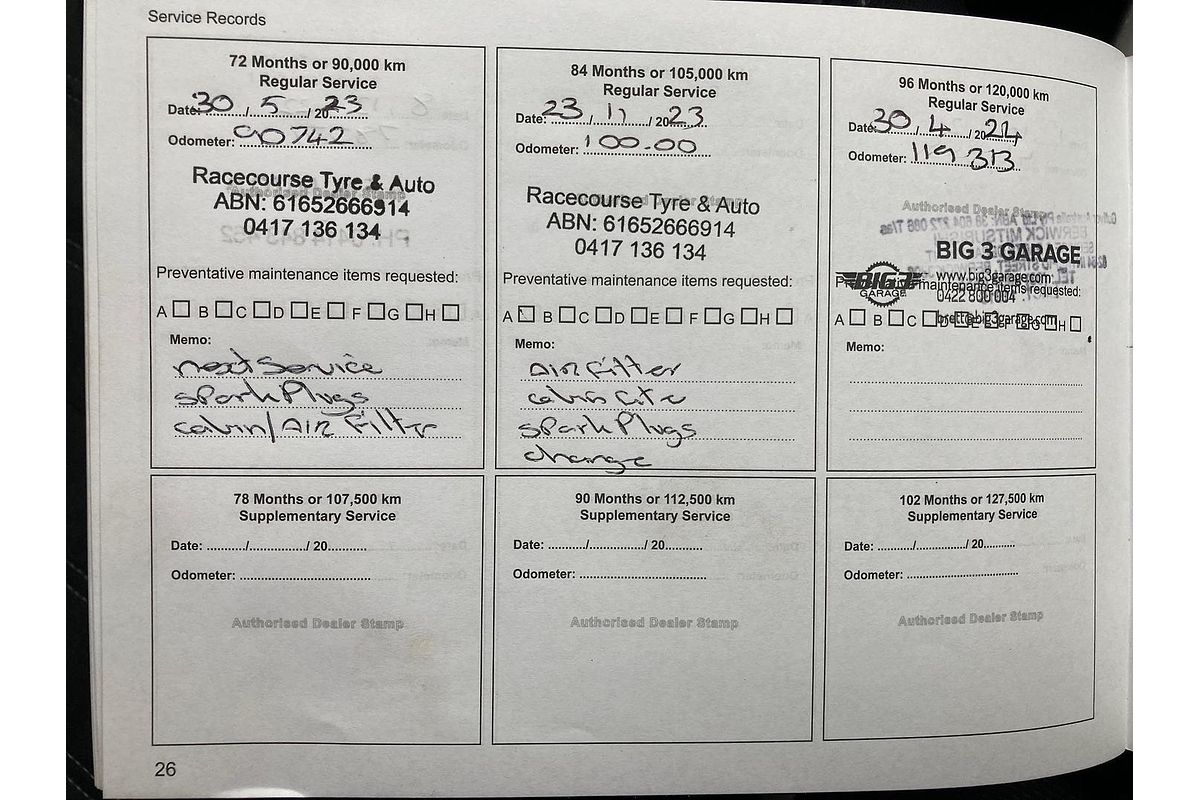 Service Records
72 Months or 90,000 km
Regular Service
Date: 30 / 5 / 2023
Odometer: 90742
Racecourse Tyre & Auto
Authorised Dealer Stamp
ABN: 61652666914
0417 136 134
Preventative maintenance items requested:
A B C D E F G H
Memo:
next Service
spark Plugs
cabin/AIR Filter
84 Months or 105,000 km
Regular Service
Date: 23 / 11 / 2023
Odometer: 100-00
Racecourse Tyre & Auto
ABN: 61652666914
0417 136 134
Preventative maintenance items requested:
A B C D E F G H
Memo:
AIR Filter
spark Plugs
change
96 Months or 120,000 km
Regular Service
Date: 30 / 4 / 2024
Odometer: 119 313
Authorised Dealer Stamp
BIG 3 GARAGE
BIG 3
GARAGE
www.big3garage.com
Preventative maintenance items requested:
0422 800 004
A B C D E F G H
brett@big3garage.com
Memo:
78 Months or 107,500 km
Supplementary Service
Date: ........../.............../ 20..........
Odometer: ..................................
Authorised Dealer Stamp
90 Months or 112,500 km
Supplementary Service
Date: ........../.............../ 20..........
Odometer: ..................................
Authorised Dealer Stamp
102 Months or 127,500 km
Supplementary Service
Date: ........../.............../ 20..........
Odometer: ..................................
Authorised Dealer Stamp
26